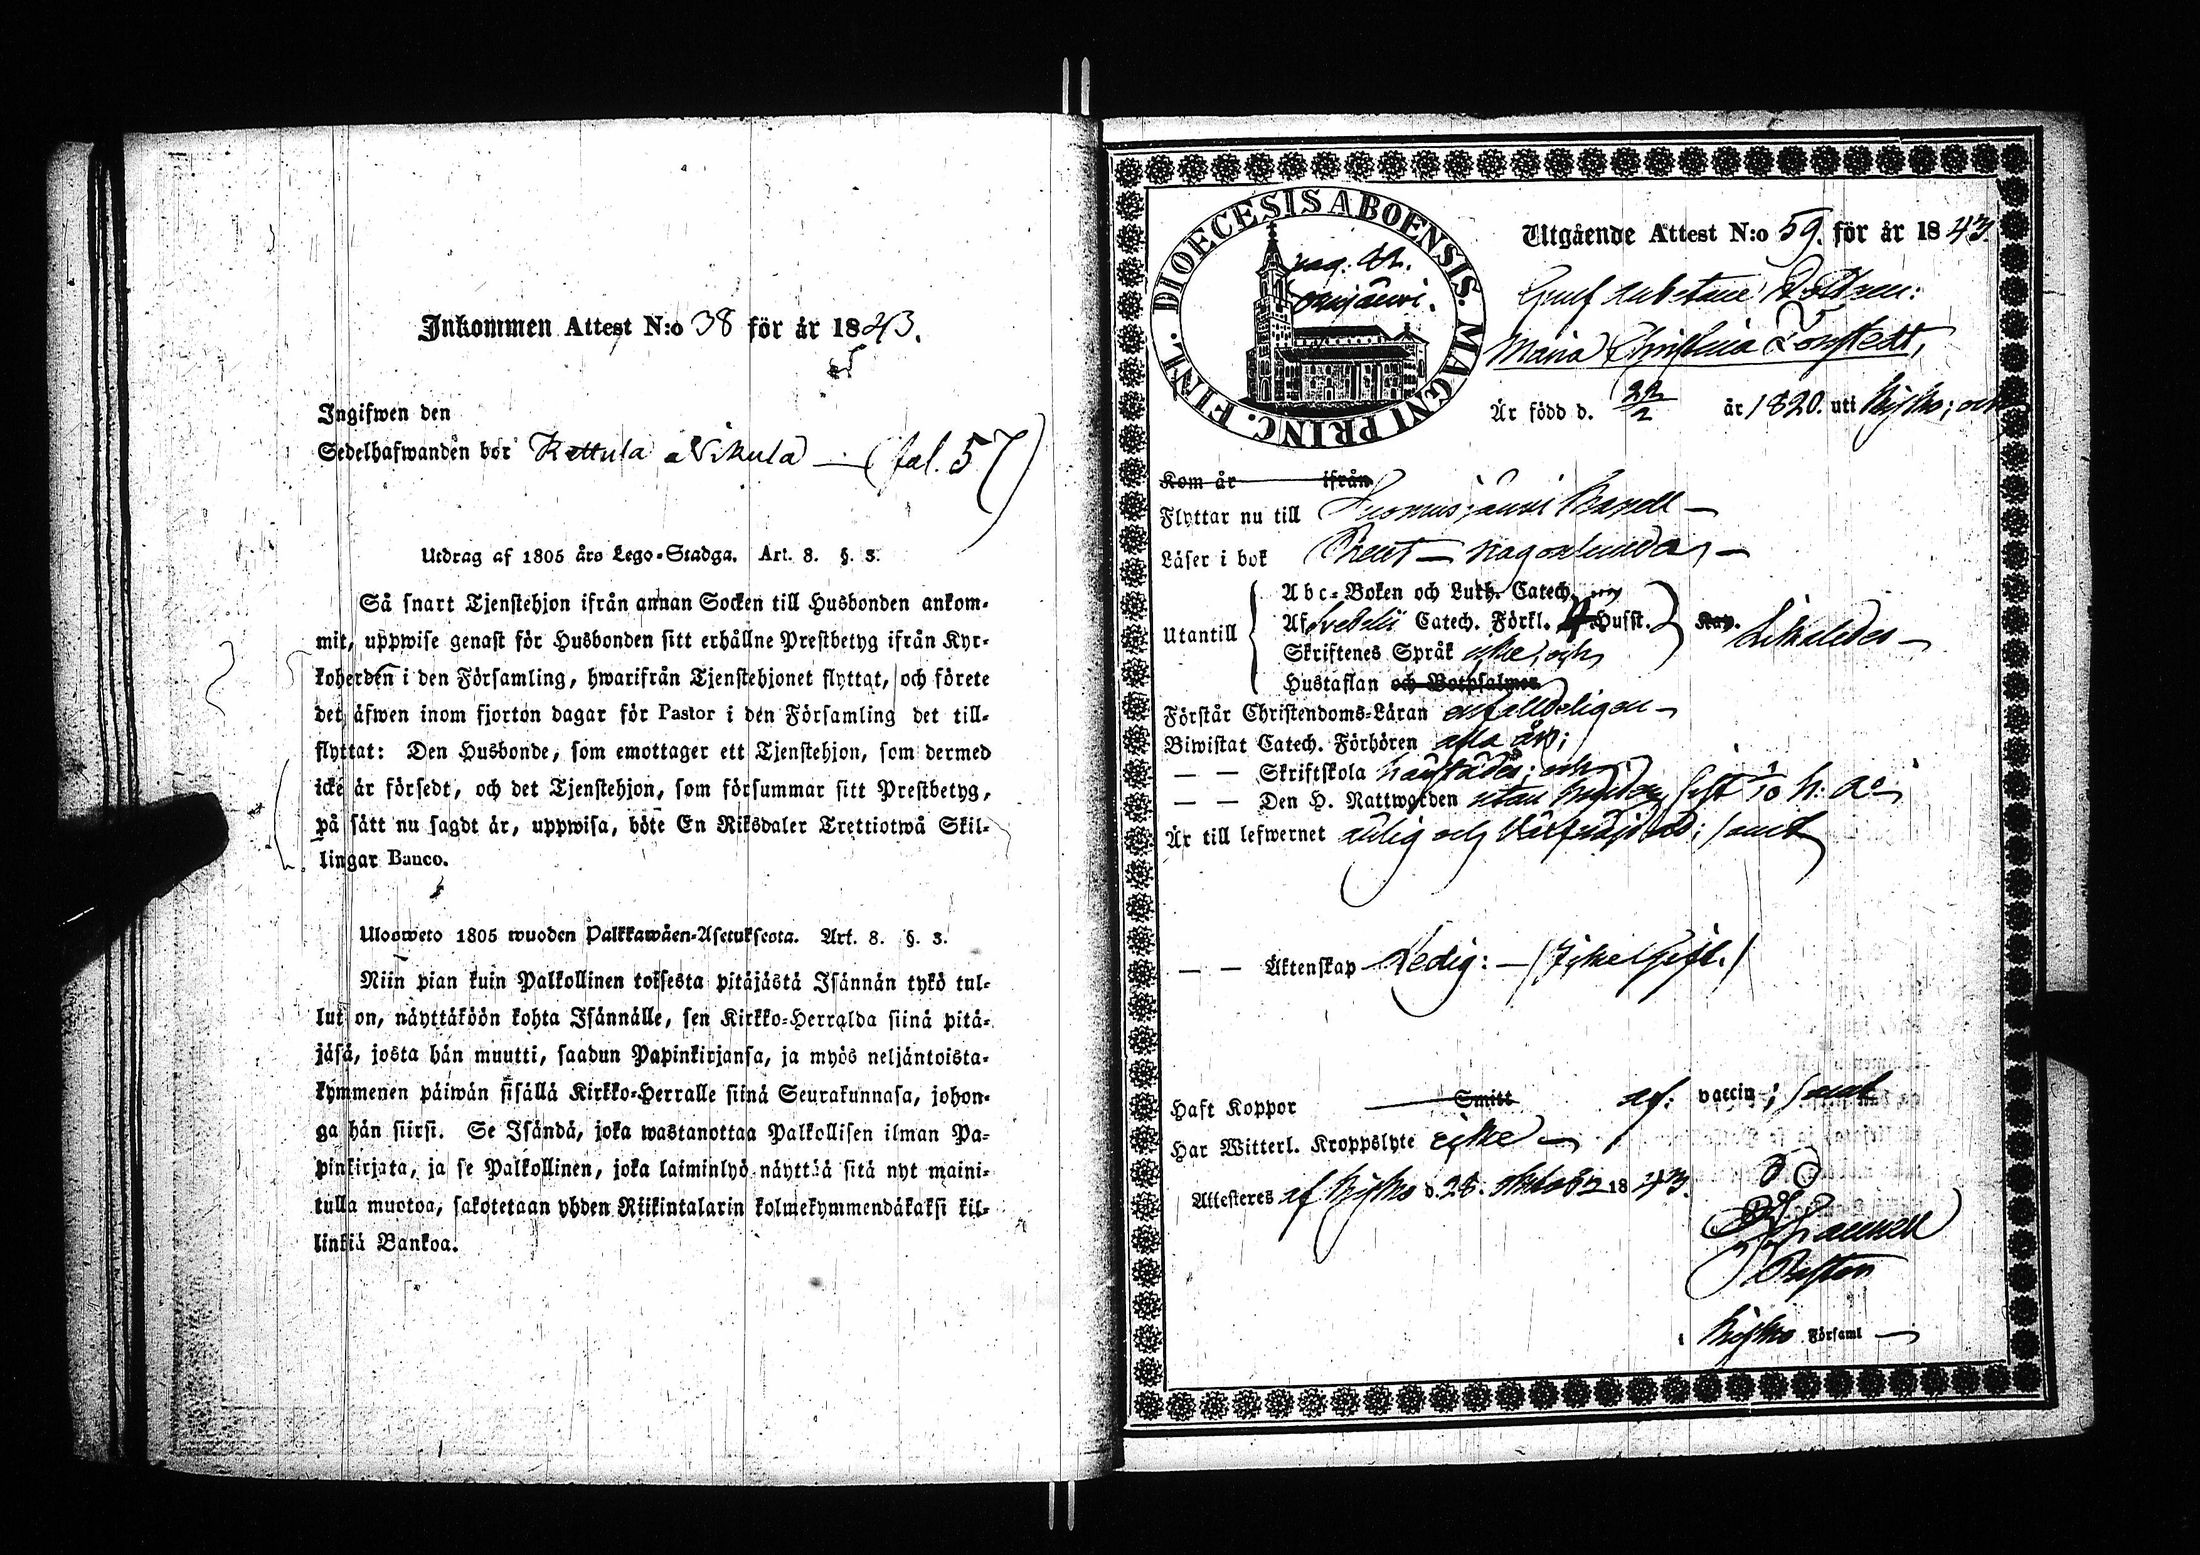 Inkommen Attest N:o 38 för år 1843.
Ingifwen den
Sedelhafwanden bor Kettula a Nikula — (fol. 57)
Utdrag af 1805 års Lego-Stadga. Art. 8. §. 3.
Så snart Tjenstehjon ifrån annan Socken till Husbonden ankom-
mit, uppwise genast för Husbonden sitt erhållne Prestbetyg ifrån Kyr-
koherden i den Församling, hwarifrån Tjenstehjonet flyttat, och förete
det äfwen inom fjorton dagar för Pastor i den Församling det till-
flyttat: Den Husbonde, som emottager ett Tjenstehjon, som dermed
icke är försedt, och det Tjenstehjon, som försummar sitt Prestbetyg,
på sätt nu sagdt är, uppwisa, böte En Riksdaler Trettiotwå Skil-
lingar Banco.
Ulosweto 1805 wuoden Palkkawäen-Asetuksesta. Art. 8. §. 3.
Niin pian kuin Palkollinen toisesta pitäjästä Isännän tykö tul-
lut on, näyttäköön kohta Isännälle, sen Kirkko-Herralda siinä pitä-
jäsä, josta hän muutti, saadun Papinkirjansa, ja myös neljäntoista-
kymmenen päiwän sisällä Kirkko-Herralle siinä Seurakunnasa, johon-
ga hän siirsi. Se Isändä, joka wastanottaa Palkollisen ilman Pa-
pinkirjata, ja se Palkollinen, joka laiminlyö näyttää sitä nyt maini-
tulla muotoa, sakotetaan yhden Riikintalarin kolmekymmendäkaksi kil-
linkiä Bankoa.
DIOECESIS ABOENSIS. MAGNI PRINC. FINL.
pag.
Utgående Attest N:o 59. för år 1843.
Maria Christina Lofstedt,
Är född d. 22/2 år 1820. uti Kisko; och
Kom år ifrån
Flyttar nu till Suomusjärvi Kapell —
Läser i bok
Utantill
Abc-Boken och Luth. Catech.
Af Svebelii Catech. Förkl. Husst.
Skriftenes Språk icke, och
Hustaflan och Botpsalmer
Förstår Christendoms-Läran enfalldeligen —
Biwistat Catech. Förhören alla år;
— — Skriftskola
— — Den H. Nattwarden utan
Är till lefwernet ärlig och
— — Äktenskap Ledig: — (Icke Gift.)
Haft Koppor Smitt af: vaccin; samt
Har Witterl. Kroppslyte icke —
Attesteras af Kisko d. 28. Oktober 1843.
Pastor
i Kisko Församl —